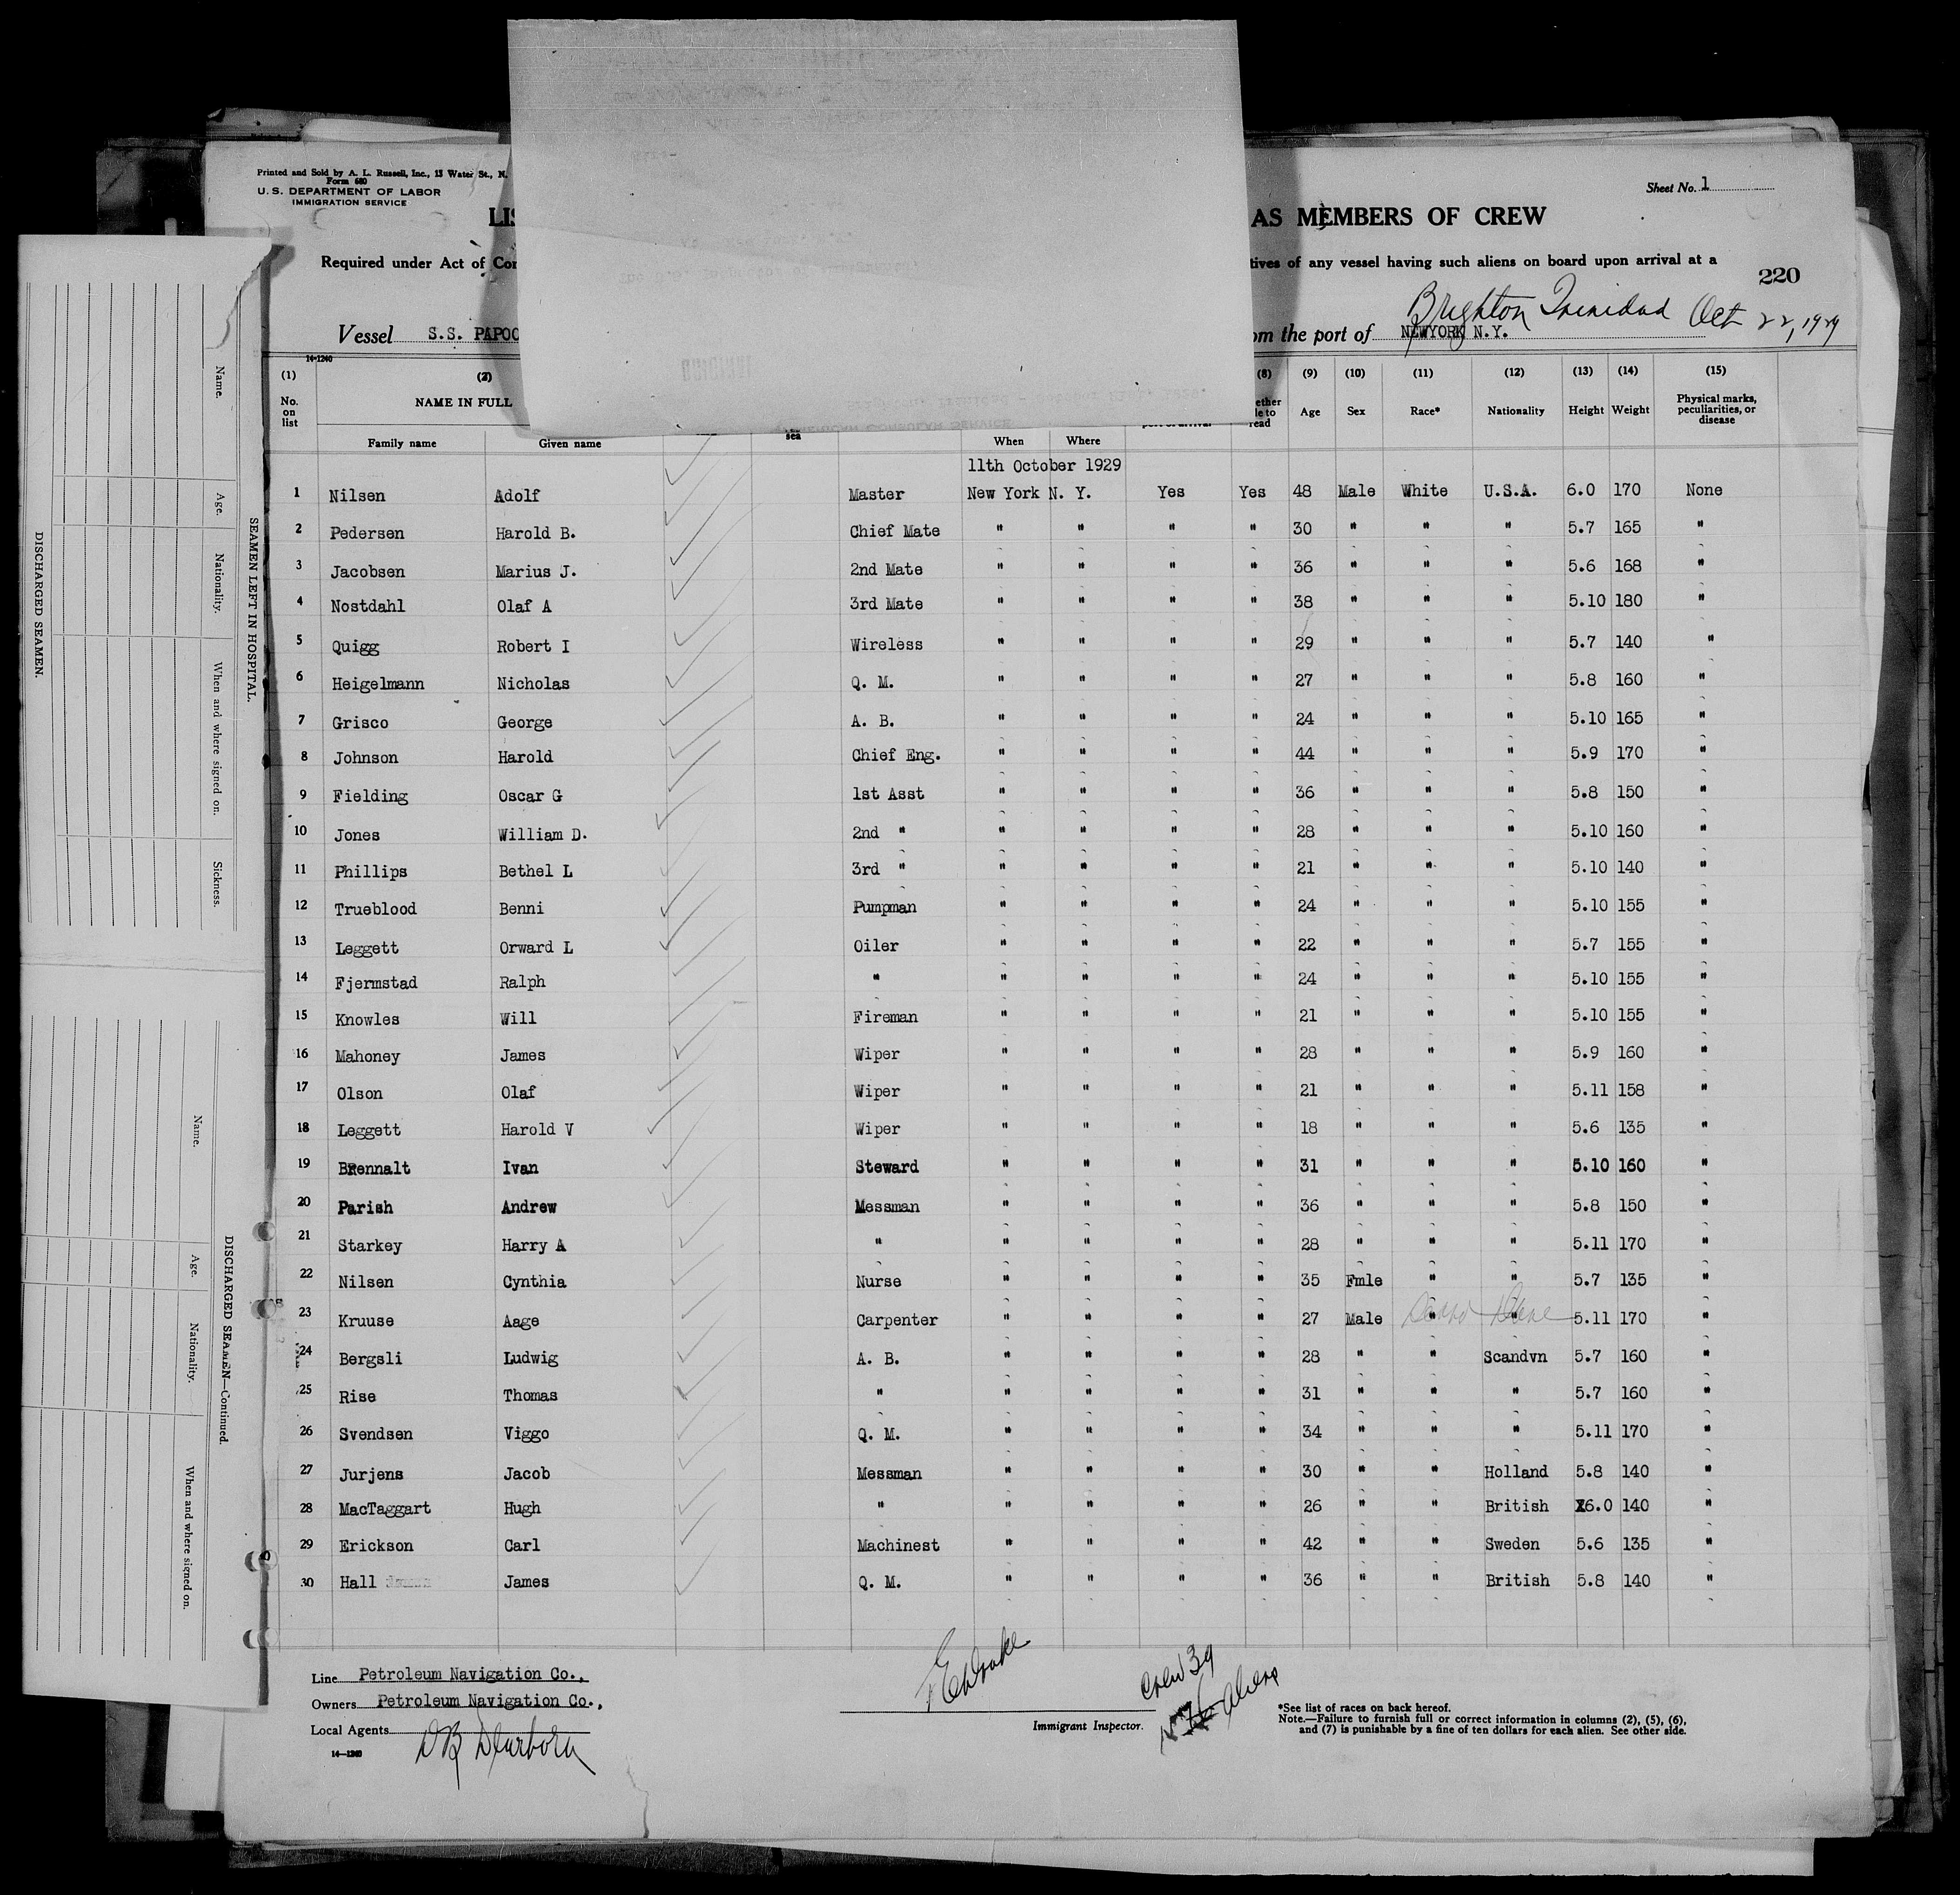 Printed and Sold by A. L. Russell, Inc., 13 Water St., N.
Form 680
U. S. DEPARTMENT OF LABOR
IMMIGRATION SERVICE
Sheet No. 1
AS MEMBERS OF CREW
Required under Act of
of any vessel having such aliens on board upon arrival at a
220
Brighton Trinidad Oct 22, 1929
Vessel S.S.
the port of NEWYORK N.Y.
14-1240
(1) (2) (8) (9) (10) (11) (12) (13) (14) (15)
No. on list NAME IN FULL read Age Sex Race* Nationality Height Weight Physical marks, peculiarities, or disease
Family name Given name sea When Where
11th October 1929
1 Nilsen Adolf Master New York N. Y. Yes Yes 48 Male White U.S.A. 6.0 170 None
2 Pedersen Harold B. Chief Mate " " " " 30 " " " 5.7 165 "
3 Jacobsen Marius J. 2nd Mate " " " " 36 " " " 5.6 168 "
4 Nostdahl Olaf A 3rd Mate " " " " 38 " " " 5.10 180 "
5 Quigg Robert I Wireless " " " " 29 " " " 5.7 140 "
6 Heigelmann Nicholas Q. M. " " " " 27 " " " 5.8 160 "
7 Grisco George A. B. " " " " 24 " " " 5.10 165 "
8 Johnson Harold Chief Eng. " " " " 44 " " " 5.9 170 "
9 Fielding Oscar G 1st Asst " " " " 36 " " " 5.8 150 "
10 Jones William D. 2nd " " " " " 28 " " " 5.10 160 "
11 Phillips Bethel L 3rd " " " " " 21 " " " 5.10 140 "
12 Trueblood Benni Pumpman " " " " 24 " " " 5.10 155 "
13 Leggett Orward L Oiler " " " " 22 " " " 5.7 155 "
14 Fjermstad Ralph " " " " " 24 " " " 5.10 155 "
15 Knowles Will Fireman " " " " 21 " " " 5.10 155 "
16 Mahoney James Wiper " " " " 28 " " " 5.9 160 "
17 Olson Olaf Wiper " " " " 21 " " " 5.11 158 "
18 Leggett Harold V Wiper " " " " 18 " " " 5.6 135 "
19 Brennalt Ivan Steward " " " " 31 " " " 5.10 160 "
20 Parish Andrew Messman " " " " 36 " " " 5.8 150 "
21 Starkey Harry A " " " " " 28 " " " 5.11 170 "
22 Nilsen Cynthia Nurse " " " " 35 Fmle " " 5.7 135 "
23 Kruuse Aage Carpenter " " " " 27 Male " " 5.11 170 "
24 Bergsli Ludwig A. B. " " " " 28 " " Scandvn 5.7 160 "
25 Rise Thomas " " " " " 31 " " " 5.7 160 "
26 Svendsen Viggo Q. M. " " " " 34 " " " 5.11 170 "
27 Jurjens Jacob Messman " " " " 30 " " Holland 5.8 140 "
28 MacTaggart Hugh " " " " " 26 " " British 6.0 140 "
29 Erickson Carl Machinest " " " " 42 " " Sweden 5.6 135 "
30 Hall James Q. M. " " " " 36 " " British 5.8 140 "
Line Petroleum Navigation Co.,
Owners Petroleum Navigation Co.,
Local Agents
14—1240
Immigrant Inspector.
Crew 39
Aliens
*See list of races on back hereof.
Note.—Failure to furnish full or correct information in columns (2), (5), (6),
and (7) is punishable by a fine of ten dollars for each alien. See other side.
SEAMEN LEFT IN HOSPITAL.
Name. Age. Nationality. When and where signed on. Sickness.
DISCHARGED SEAMEN.
DISCHARGED SEAMEN—Continued.
Name. Age. Nationality. When and where signed on.